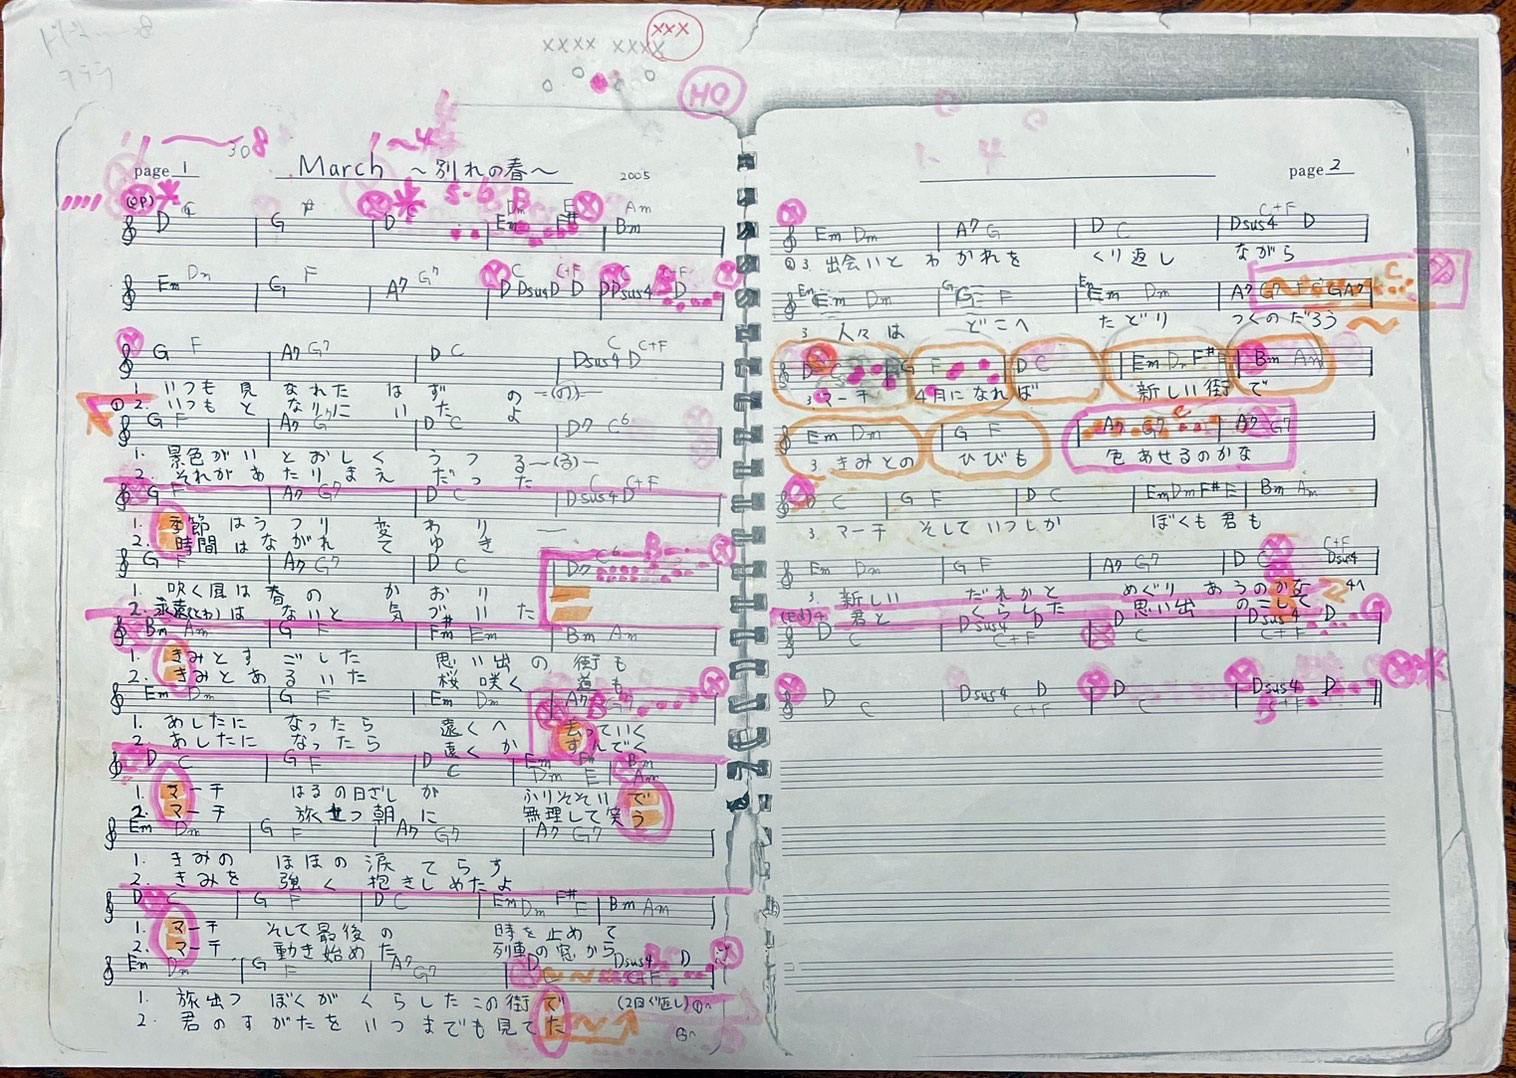 xxx
xxxx xxxx
HO
1〜4
308
page 1
March 〜別れの春〜
2005
5-6 B
Dm E Am
D G D C Em F# Bm
Dm F G7 C C+F C C+F
Em G A7 D Dsus4 D D Dsus4 D
G F A7 G7 D C Dsus4 D C C+F
1. いつも見なれたはずの―(の)―
① 2. いつもとなりにいたよ
G F A7 G7 D C D7 C6
1. 景色がいとおしくうつる―(る)―
2. それがあたりまえだった
G F A7 G7 D C Dsus4 D C C+F
1. 季節はうつり変わり
2. 時間はながれてゆき
G F A7 G7 D C D7 C6 B
1. 吹く風は春のかおり
2. 永遠(とわ)はないと気づいた
Bm Am G F F#m Em Bm Am
1. きみとすごした思い出の街も
2. きみとあるいた桜咲く道も
Em Dm G F Em Dm A7 B
1. あしたになったら遠くへ去っていく
2. あしたになったら遠くかすんでく
D C G F D C Em Dm F# E Bm Am
1. マーチ はるの日ざしがふりそそいで
2. マーチ 旅立つ朝に無理して笑う
Em Dm G F A7 G7 A7 G7
1. きみのほほの涙てらす
2. きみを強く抱きしめたよ
D C G F D C Em Dm F# E Bm Am
1. マーチ そして最後の時を止めて
2. マーチ 動き始めた列車の窓から
Em Dm G F A7 G7 D Dsus4 D
1. 旅出つぼくがくらしたこの街で (2回くり返し) ①へ
2. 君のすがたをいつまでも見てた
page 2
Em Dm A7 G D C Dsus4 D C+F
② 3. 出会いとわかれをくり返しながら
Em Dm G F Em Dm A7 G7 F C G A7 C
3. 人々はどこへたどりつくのだろう〜
D C G F D C Em Dm F# E Bm Am
3. マーチ 4月になれば新しい街で
Em Dm G F A7 G7 C A7 G7
3. きみとのひびも色あせるのかな
D C G F D C Em Dm F# E Bm Am
3. マーチ そしていつしかぼくも君も
Em Dm G F A7 G7 D C Dsus4 C+F
3. 新しいだれかとめぐりあうのかな 4へ
(Ed) 4. 君とくらした思い出のこして
D C Dsus4 D C+F D C Dsus4 D C+F
D C Dsus4 D C+F D C Dsus4 D C+F